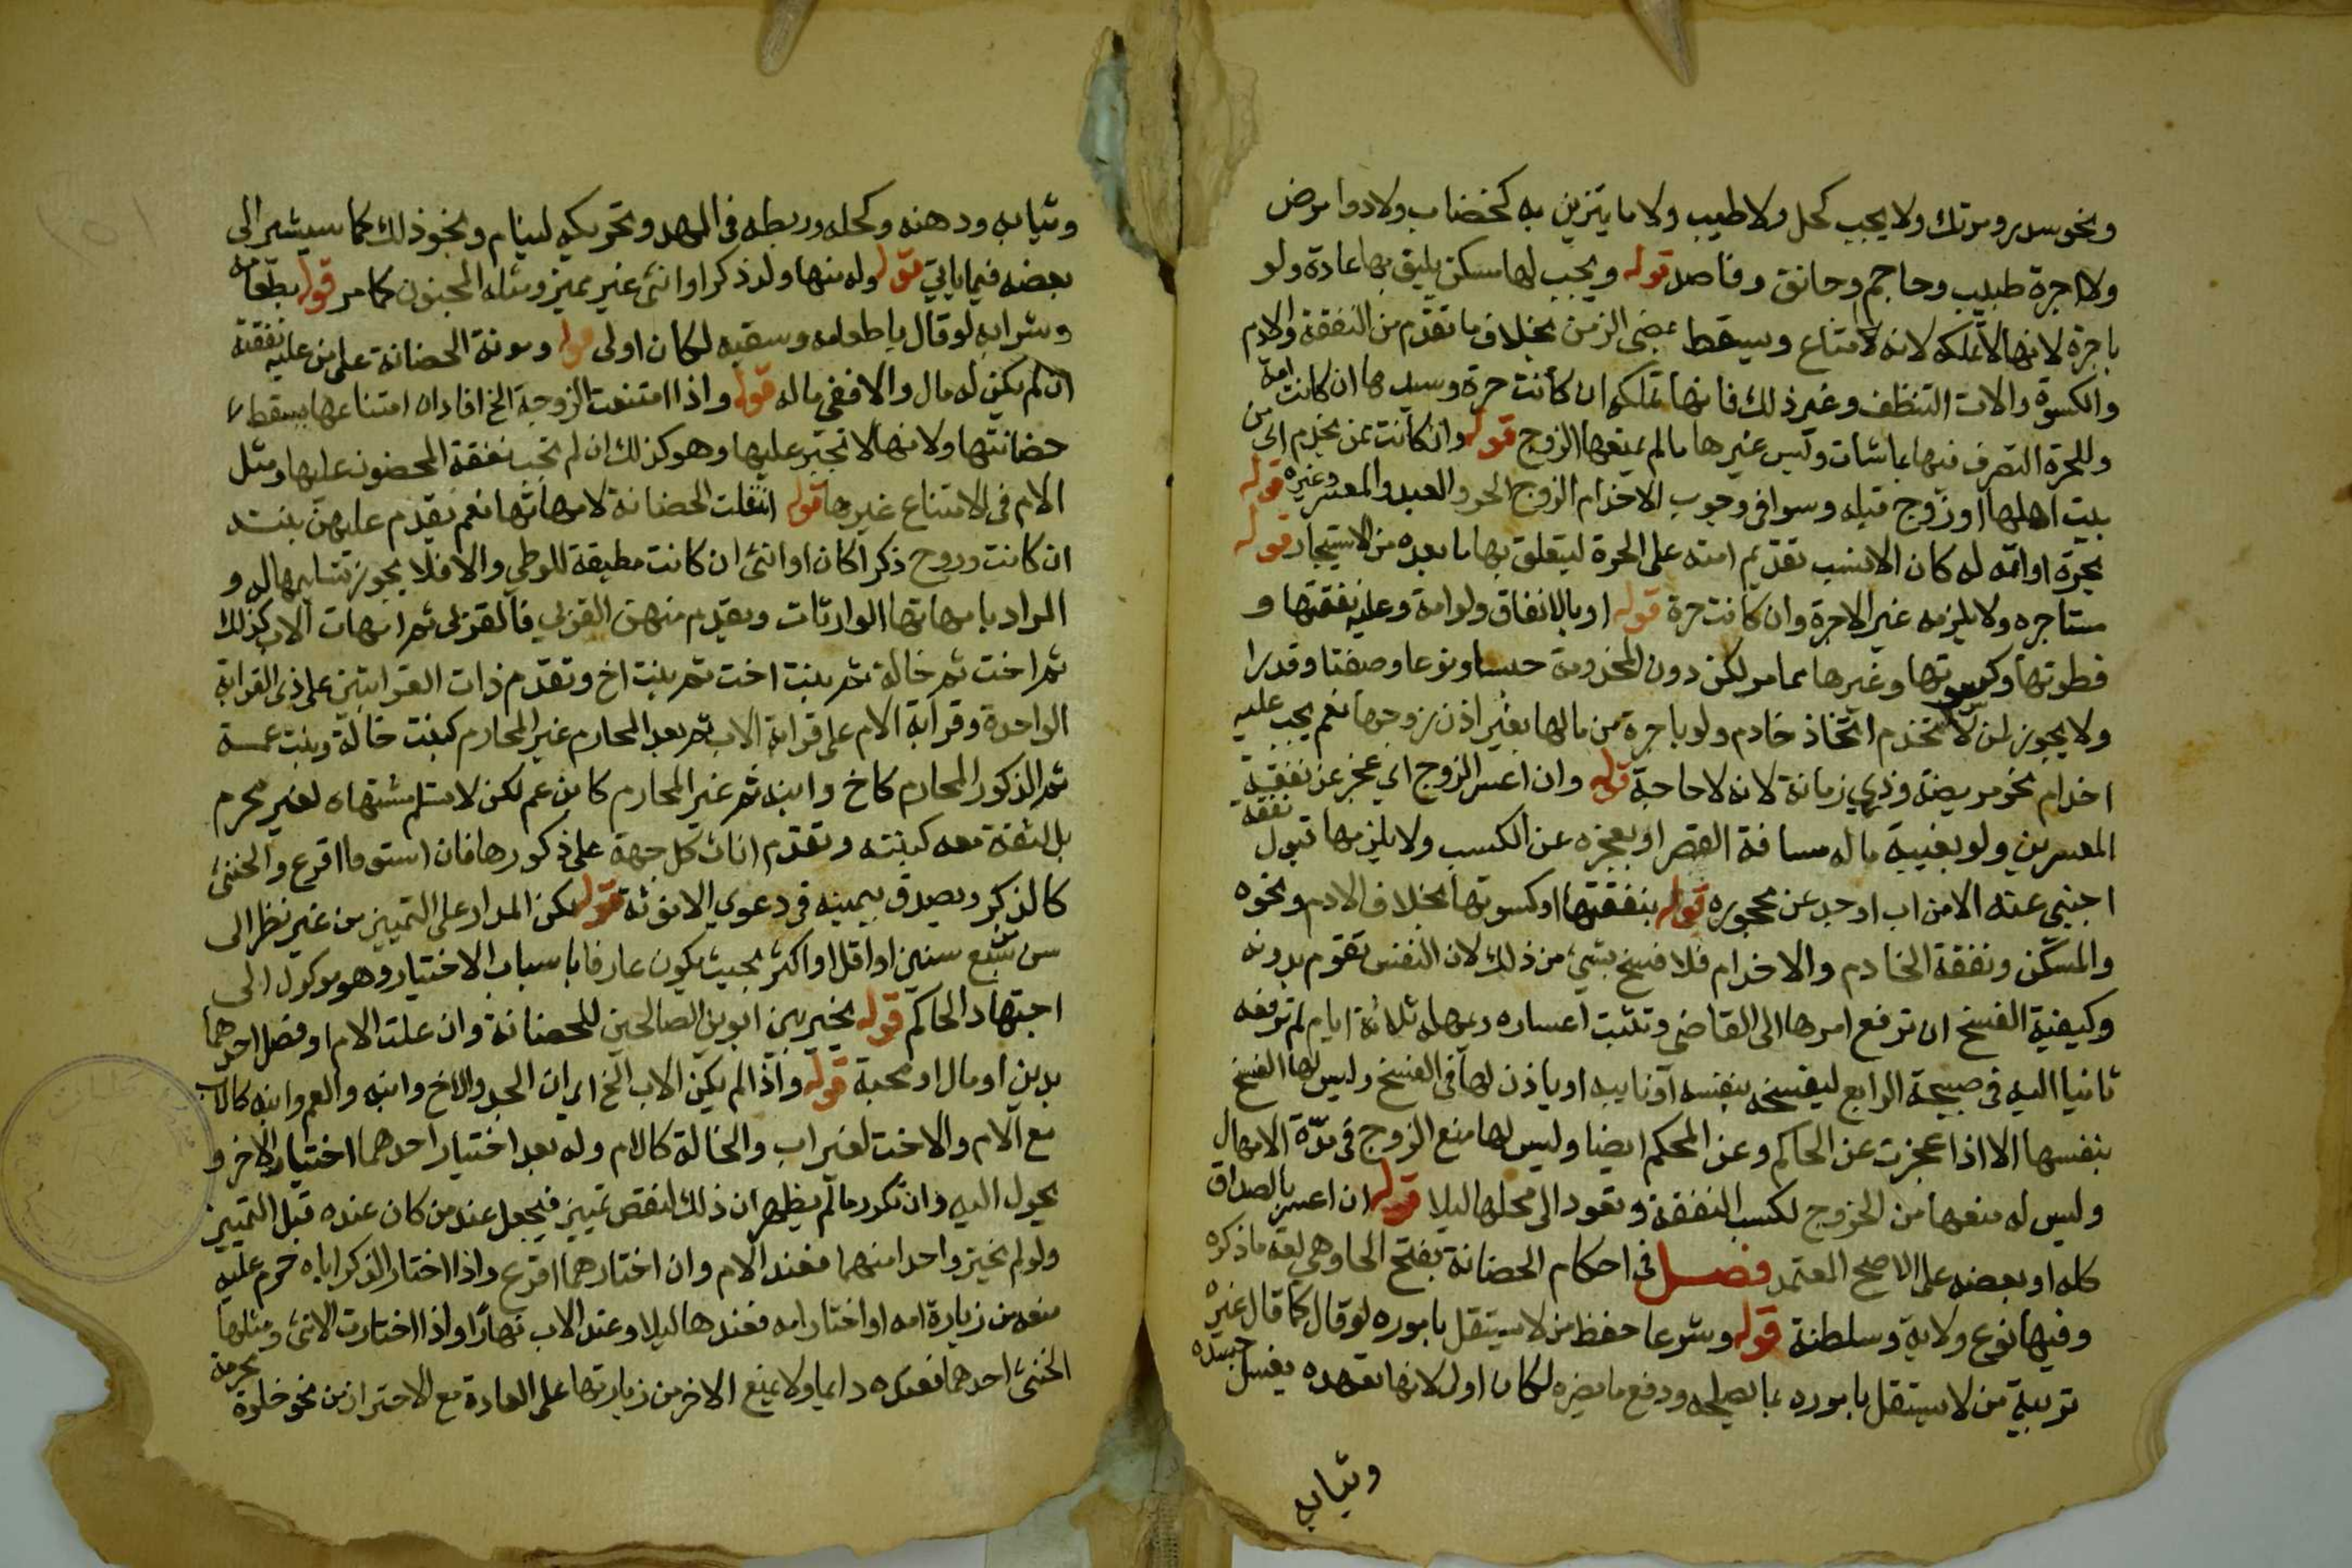 ونحو سدر ومرتك ولا يجب كحل ولا طيب ولا ما يتزين به كخضاب ولا دوا مرض
ولا اجرة طبيب وحاجم وخاتن وفاصد قوله ويجب لها مسكن يليق بها عادة ولو
باجرة لانها لا تملكه لانه لامتاع ويسقط بمضى الزمن بخلاف ما تقدم من النفقة والادم
والكسوة والات التنظف وغير ذلك فانها تملكه ان كانت حرة وسيدها ان كانت امة
وللحرة التصرف فيها بما شات وليس غيرها مالم يمنعها الزوج قوله وان كانت ممن يخدم اى من
بيت اهلها او زوج قبله وسوا فى وجوب الاخدام الزوج الحر والعبد والمعسر وغيره قوله
بحرة او امة له كان الانسب تقديم امته على الحرة ليتعلق بها ما بعده من الاستيجار قوله
مستاجره ولا يلزمه غير الاجرة وان كانت حرة قوله او بالانفاق ولو امة وعليه نفقتها و
فطرتها وكسوتها وغيرها مما مر لكن دون المخدومة جنسا ونوعا وصفتا وقدرا
ولا يجوز لمن لا تخدم اتخاذ خادم ولو باجرة من مالها بغير اذن زوجها نعم يجب عليه
اخدام نحو مريضة وذي زمانة لانه لا حاجة قوله وان اعسر الزوج اي عجز عن نفقة
المعسرين ولو بغيبة ماله مسافة القصر او بعجزه عن الكسب ولا يلزمها قبول نفقة
اجنبي عنه الا من اب او جد عن محجوره قوله بنفقتها او كسوتها بخلاف الادم ونحوه
والمسكن ونفقة الخادم والاخدام فلا فسخ بشيء من ذلك لان النفس تقوم بدونه
وكيفية الفسخ ان ترفع امرها الى القاضي وتثبت اعساره ويمهله ثلاثة ايام ثم ترفعه
ثانيا اليه فى صبيحة الرابع ليفسخه بنفسه او نايبه او ياذن لها فى الفسخ وليس لها الفسخ
بنفسها الا اذا عجزت عن الحاكم وعن المحكم ايضا وليس لها منع الزوج فى مدة الامهال
وليس له منعها من الخروج لكسب النفقة وتعود الى محلها ليلا قوله ان اعسر بالصداق
كله او بعضه على الاصح المعتمد فصل فى احكام الحضانة بفتح الحا وهي لغة ما ذكره
وفيها نوع ولاية وسلطنة قوله وشرعا حفظ من لا يستقل باموره لو قال كما قال غيره
تربية من لا يستقل باموره بما يصلحه ودفع ما يضره لكان اولى لانها تعهده بغسل جسده
وثيابه
وثيابه ودهنه وكحله وربطه فى المهد وتحريكه لينام ونحو ذلك كما سيشير الى
بعضه فيما ياتي قوله وله منها ولد ذكرا او انثى غير مميز ومثله المجنون كما مر قوله بطعامه
وشرابه لو قال باطعامه وسقيه لكان اولى قوله ومونة الحضانة على من عليه نفقته
ان لم يكن له مال والا ففي ماله قوله واذا امتنعت الزوجة الخ افاد ان امتناعها يسقط
حضانتها ولانها لا تجبر عليها وهو كذلك ان لم تجب نفقة المحضون عليها ومثل
الام فى الامتناع غيرها قوله انتقلت الحضانة لامهاتها نعم يقدم عليهن بنت
ان كانت وزوج ذكرا كان او انثى ان كانت مطيقة للوطي والا فلا يجوز تسليمها له و
المراد بامهاتها الوارثات ويقدم منهن القربي فالقربى ثم امهات الاب كذلك
ثم اخت ثم خالة ثم بنت اخت ثم بنت اخ وتقدم ذات القرابتين على ذى القرابة
الواحدة وقرابة الام على قرابة الاب ثم بعد المحارم غير المحارم كبنت خالة وبنت عمة
ثم الذكور المحارم كاخ وابنه ثم غير المحارم كابن عم لكن لا تسلم مشتهاه لغير محرم
بل لثقة معه كبنته وتقدم اناث كل جهة على ذكورها فان استووا اقرع والخنثى
كالذكر ويصدق بيمينه فى دعوي الانوثة قوله لكن المدار على التمييز من غير نظر الى
سن سبع سنين او اقل او اكثر بحيث يكون عارفا باسباب الاختيار وهو موكول الى
اجتهاد الحاكم قوله يخير بين ابوين الصالحين للحضانة وان علت الام او فضل احدهما
بدين او مال او محبة قوله واذا لم يكن الاب الخ اي ان الجد والاخ وابنه والعم وابنه كالاب
مع الام والاخت لغير اب والخالة كالام وله بعد اختيار احدهما اختيار الاخر و
يحول اليه وان تكرر مالم يظهر ان ذلك لنقص تمييز فيجعل عند من كان عنده قبل التمييز
ولو لم يختر واحدا منهما فعند الام وان اختارهما اقرع واذا اختار الذكر اباه حرم عليه
منعه من زيارة امه او اختار امه فعندها ليلا وعند الاب نهارا واذا اختارت الانثى ومثلها
الخنثى احدهما فعنده دايما ولا يمنع الاخر من زيارتها على العادة مع الاحتراز من نحو خلوة محرمة